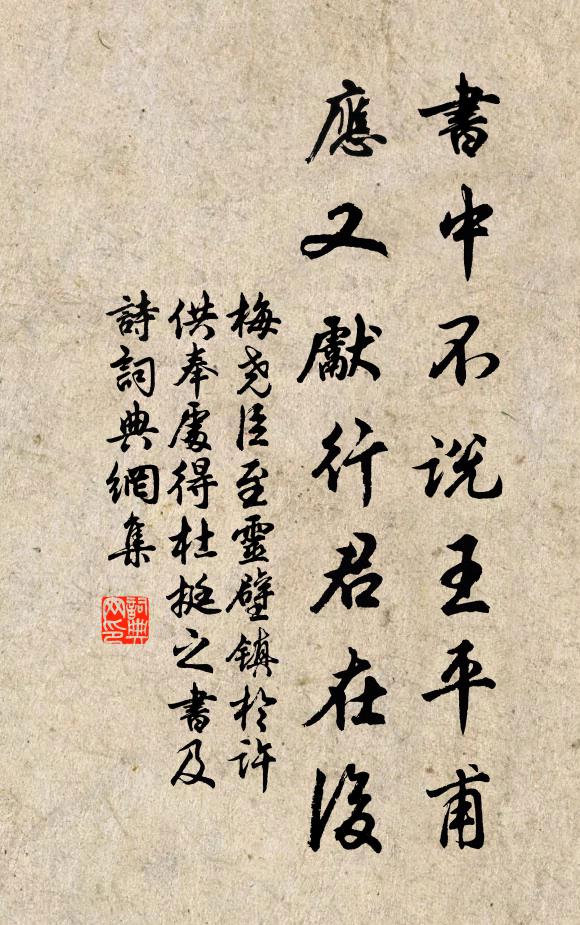 書中不説王平甫
應又獻行君在後
梅尭臣至靈壁鎮於許
供奉處得杜挺之書及
詩詞典網集
詞典網印